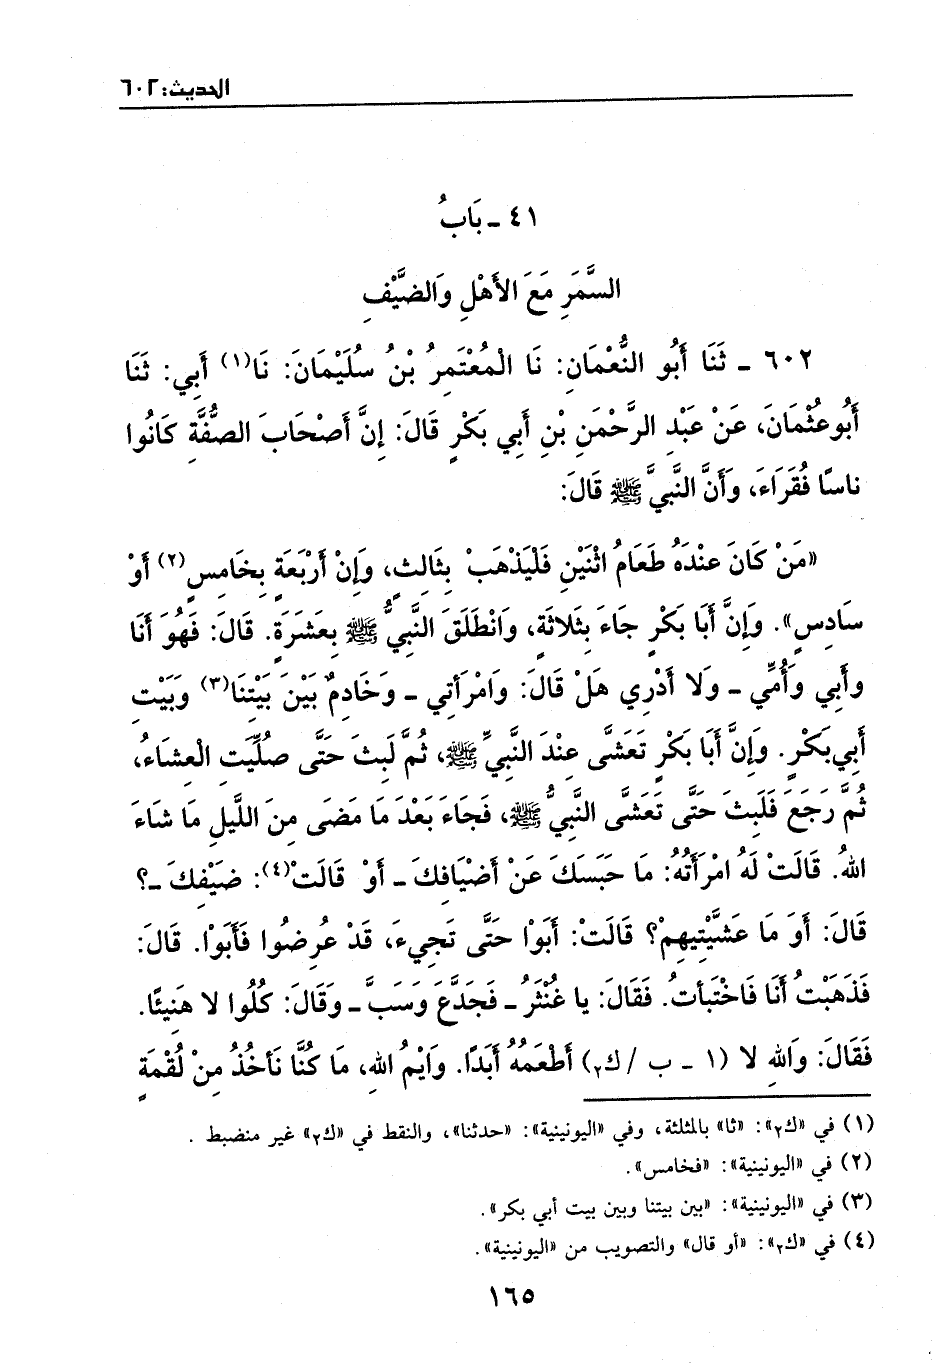 الحديث: ٦٠٢
٤١ ـ بَابُ
السَّمَرِ مَعَ الأَهْلِ وَالضَّيْفِ
٦٠٢ ـ ثَنَا أَبُو النُّعْمَانِ: نَا الْمُعْتَمِرُ بْنُ سُلَيْمَانَ: نَا(١) أَبِي: ثَنَا
أَبُو عُثْمَانَ، عَنْ عَبْدِ الرَّحْمَنِ بْنِ أَبِي بَكْرٍ قَالَ: إِنَّ أَصْحَابَ الصُّفَّةِ كَانُوا
نَاسًا فُقَرَاءَ، وَأَنَّ النَّبِيَّ ﷺ قَالَ:
«مَنْ كَانَ عِنْدَهُ طَعَامُ اثْنَيْنِ فَلْيَذْهَبْ بِثَالِثٍ، وَإِنْ أَرْبَعَةٍ بِخَامِسٍ(٢) أَوْ
سَادِسٍ». وَإِنَّ أَبَا بَكْرٍ جَاءَ بِثَلاثَةٍ، وَانْطَلَقَ النَّبِيُّ ﷺ بِعَشَرَةٍ. قَالَ: فَهُوَ أَنَا
وَأَبِي وَأُمِّي ـ وَلا أَدْرِي هَلْ قَالَ: وَامْرَأَتِي ـ وَخَادِمٌ بَيْنَ بَيْتِنَا(٣) وَبَيْتِ
أَبِي بَكْرٍ. وَإِنَّ أَبَا بَكْرٍ تَعَشَّى عِنْدَ النَّبِيِّ ﷺ، ثُمَّ لَبِثَ حَتَّى صُلِّيَتِ الْعِشَاءُ،
ثُمَّ رَجَعَ فَلَبِثَ حَتَّى تَعَشَّى النَّبِيُّ ﷺ، فَجَاءَ بَعْدَ مَا مَضَى مِنَ اللَّيْلِ مَا شَاءَ
اللهُ. قَالَتْ لَهُ امْرَأَتُهُ: مَا حَبَسَكَ عَنْ أَضْيَافِكَ ـ أَوْ قَالَتْ(٤): ضَيْفِكَ ـ؟
قَالَ: أَوَ مَا عَشَّيْتِيهِمْ؟ قَالَتْ: أَبَوْا حَتَّى تَجِيءَ، قَدْ عُرِضُوا فَأَبَوْا. قَالَ:
فَذَهَبْتُ أَنَا فَاخْتَبَأْتُ. فَقَالَ: يا غُنْثَرُ ـ فَجَدَّعَ وَسَبَّ ـ وَقَالَ: كُلُوا لا هَنِيئًا.
فَقَالَ: وَاللهِ لا (١ ـ ب / ك٢) أَطْعَمُهُ أَبَدًا. وَايْمُ اللهِ، مَا كُنَّا نَأْخُذُ مِنْ لُقْمَةٍ
(١) في «ك٢»: «ثا» بالمثلثة، وفي «اليونينية»: «حدثنا»، والنقط في «ك٢» غير منضبط .
(٢) في «اليونينية»: «فخامس».
(٣) في «اليونينية»: «بين بيتنا وبين بيت أبي بكر».
(٤) في «ك٢»: «أو قال» والتصويب من «اليونينية».
١٦٥